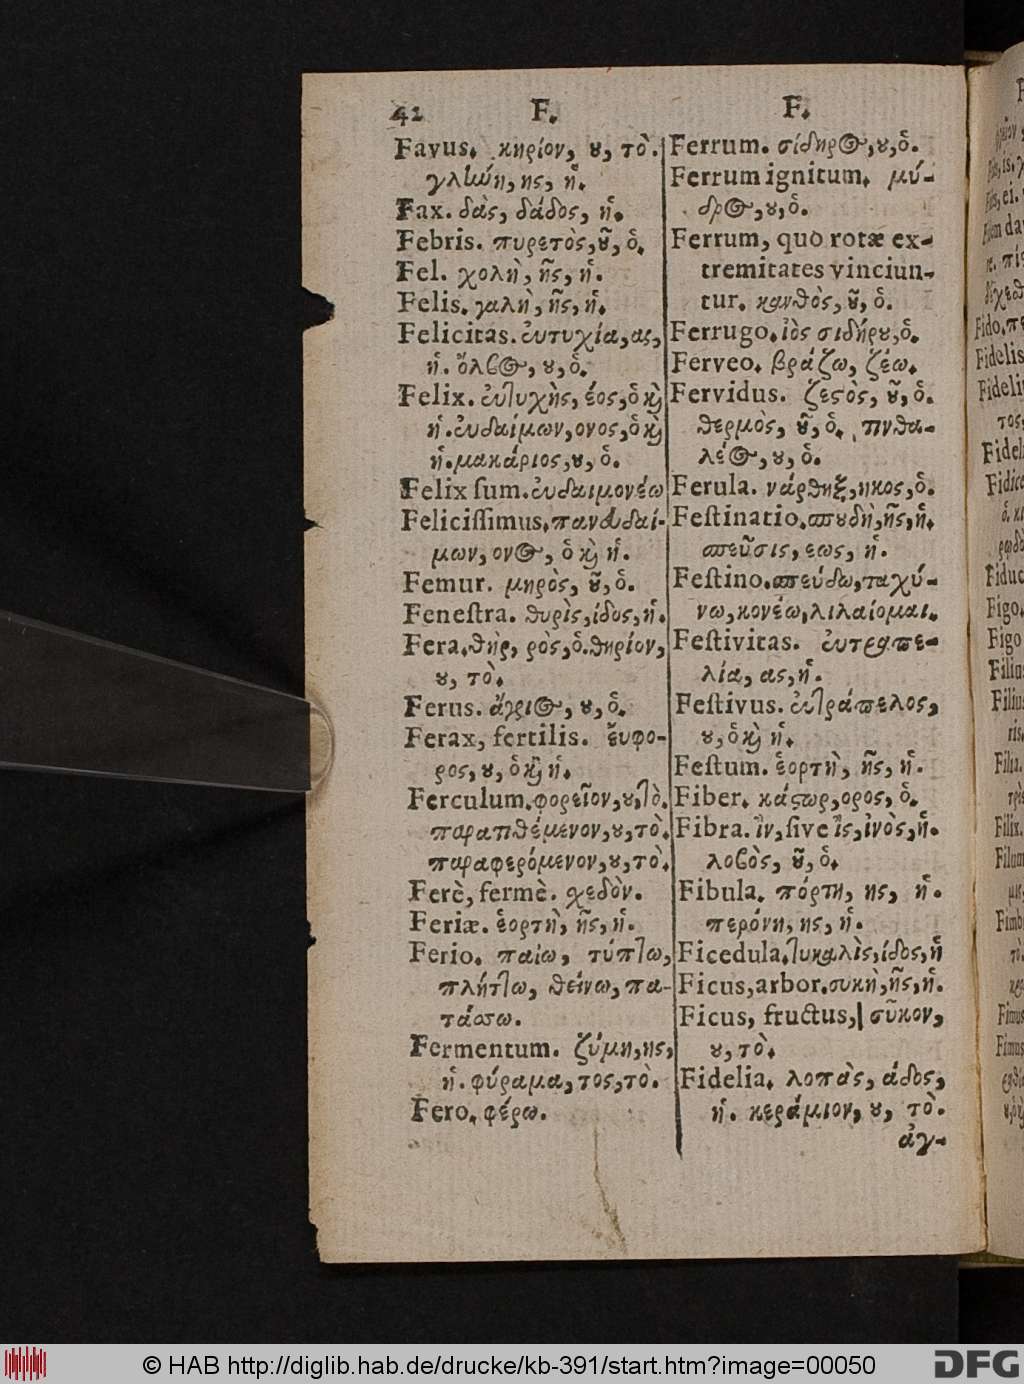 42 F. F.
Favus. κηρίον, ȣ, τὸ.
γλώνη, ης, ἡ.
Fax. δὰς, δάδος, ἡ.
Febris. πυρετὸς, ȣ͂, ὁ.
Fel. χολὴ, ῆς, ἡ.
Felis. γαλὴ, ῆς, ἡ.
Felicitas. ἐυτυχία, ας,
ἡ. ὄλβος, ȣ, ὁ.
Felix. ἐυτυχὴς, έος, ὁ ϗ
ἡ. ἐυδαίμων, ονος, ὁ ϗ
ἡ. μακάριος, ȣ, ὁ.
Felix ſum. ἐυδαιμονέω
Feliciſſimus. πανευδαί-
μων, ονος, ὁ ϗ ἡ.
Femur. μηρὸς, ȣ͂, ὁ.
Feneſtra. θυρὶς, ίδος, ἡ.
Fera. θὴρ, ρὸς, ὁ. θηρίον,
ȣ, τὸ.
Ferus. ἄγριος, ȣ, ὁ.
Ferax, fertilis. ἔυφο-
ρος, ȣ, ὁ ϗ ἡ.
Ferculum. φορεῖον, ȣ, τὸ.
παρατιθέμενον, ȣ, τὸ.
παραφερόμενον, ȣ, τὸ.
Ferè, fermè. χεδὸν.
Feriæ. ἑορτὴ, ῆς, ἡ.
Ferio. παίω, τύπτω,
πλήττω, θείνω, πα-
τάσσω.
Fermentum. ζύμη, ης,
ἡ. φύραμα, τος, τὸ.
Fero. φέρω.
Ferrum. σίδηρος, ȣ, ὁ.
Ferrum ignitum. μύ-
δρος, ȣ, ὁ.
Ferrum, quo rotæ ex-
tremitates vinciun-
tur. κανθὸς, ȣ͂, ὁ.
Ferrugo. ἰὸς σιδήρȣ, ὁ.
Ferveo. βράζω, ζέω.
Fervidus. ζεϛὸς, ȣ͂, ὁ.
θερμὸς, ȣ͂, ὁ. πυθα-
λέος, ȣ, ὁ.
Ferula. νάρθηξ, ηκος, ὁ.
Feſtinatio. σπȣδὴ, ῆς, ἡ.
σπεῦσις, εως, ἡ.
Feſtino. σπεύδω, ταχύ-
νω, κονέω, λιλαίομαι.
Feſtivitas. ἐυτραπε-
λία, ας, ἡ.
Feſtivus. ἐυτράπελος,
ȣ, ὁ ϗ ἡ.
Feſtum. ἑορτὴ, ῆς, ἡ.
Fiber. κάϛωρ, ορος, ὁ.
Fibra. ἲν, ſive ἲς, ἰνὸς, ἡ.
λοβὸς, ȣ͂, ὁ.
Fibula. πόρπη, ης, ἡ.
περόνη, ης, ἡ.
Ficedula. συκαλὶς, ίδος, ἡ
Ficus, arbor. συκὴ, ῆς, ἡ.
Ficus, fructus, σῦκον,
ȣ, τὸ.
Fidelia. λοπὰς, άδος,
ἡ. κεράμιον, ȣ, τὸ.
ἀγ-
© HAB http://diglib.hab.de/drucke/kb-391/start.htm?image=00050
DFG